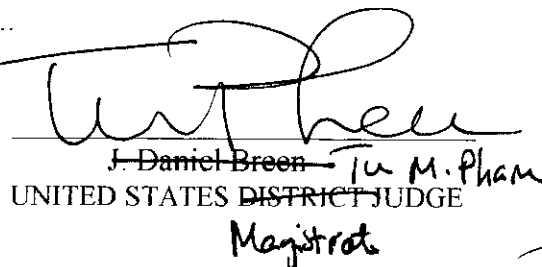 Tu M. Pham
J. Daniel Breen Tu M. Pham
UNITED STATES DISTRICT JUDGE
Magistrate